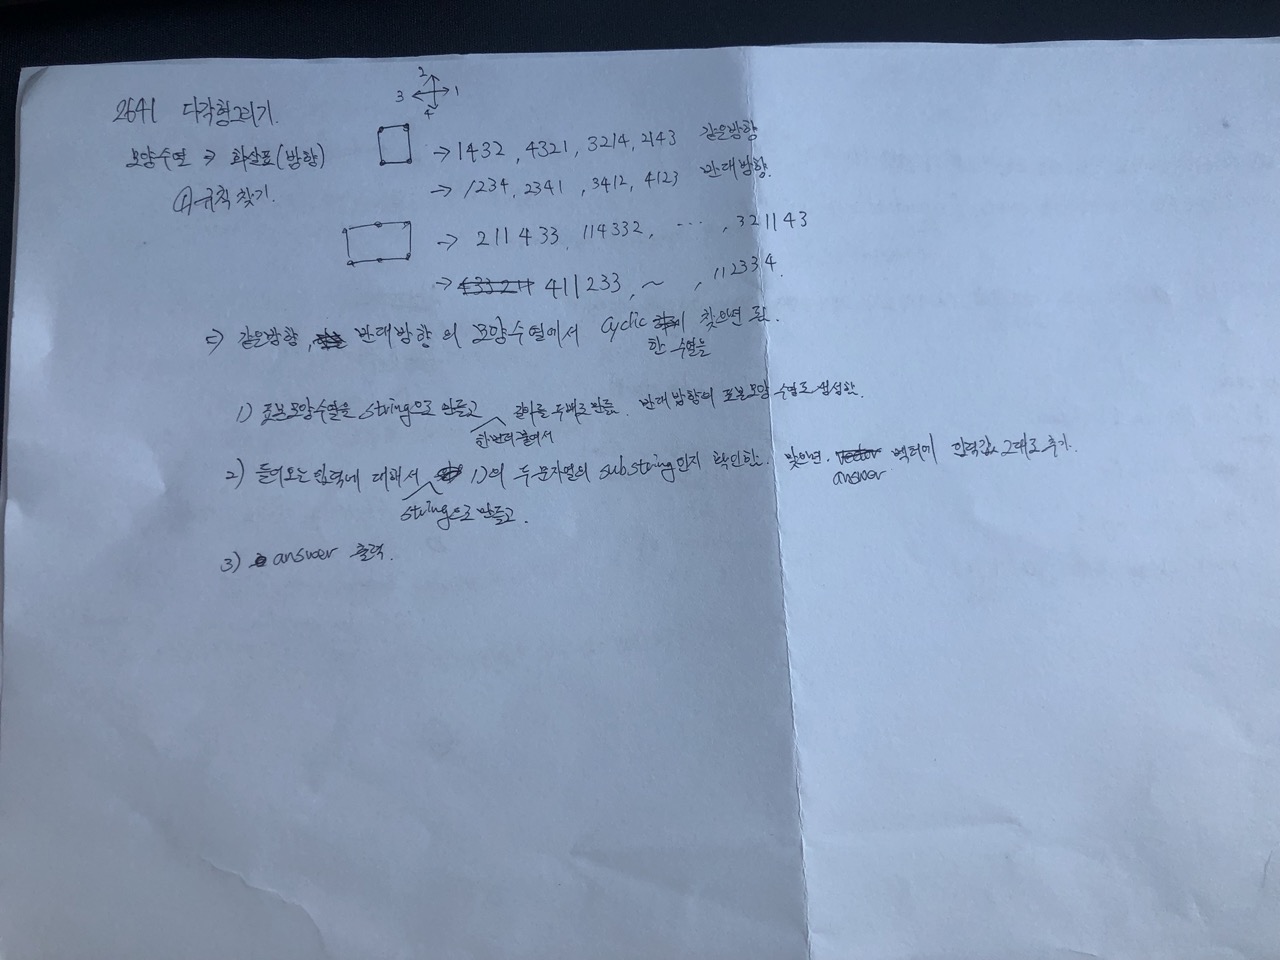 2641 다각형그리기.
2
3 1
4
모양수열 ⇒ 화살표(방향)
→ 1432, 4321, 3214, 2143 같은방향
① 규칙 찾기.
→ 1234, 2341, 3412, 4123 반대방향.
→ 211433, 114332, ..., 321143
→ 411233, ~, 112334.
⇒ 같은방향, 반대방향의 모양수열에서 cyclic 찾으면 됨.
한 수열을
1) 표본모양수열을 string으로 만들고 길이를 두배로 만듦. 반대방향의 표본모양수열도 생성함.
한번더 붙여서
2) 들어오는 입력에 대해서 1)의 두 문자열의 substring인지 확인함. 맞으면. 벡터에 입력값 그대로 추가.
string으로 만들고. answer
3) answer 출력.